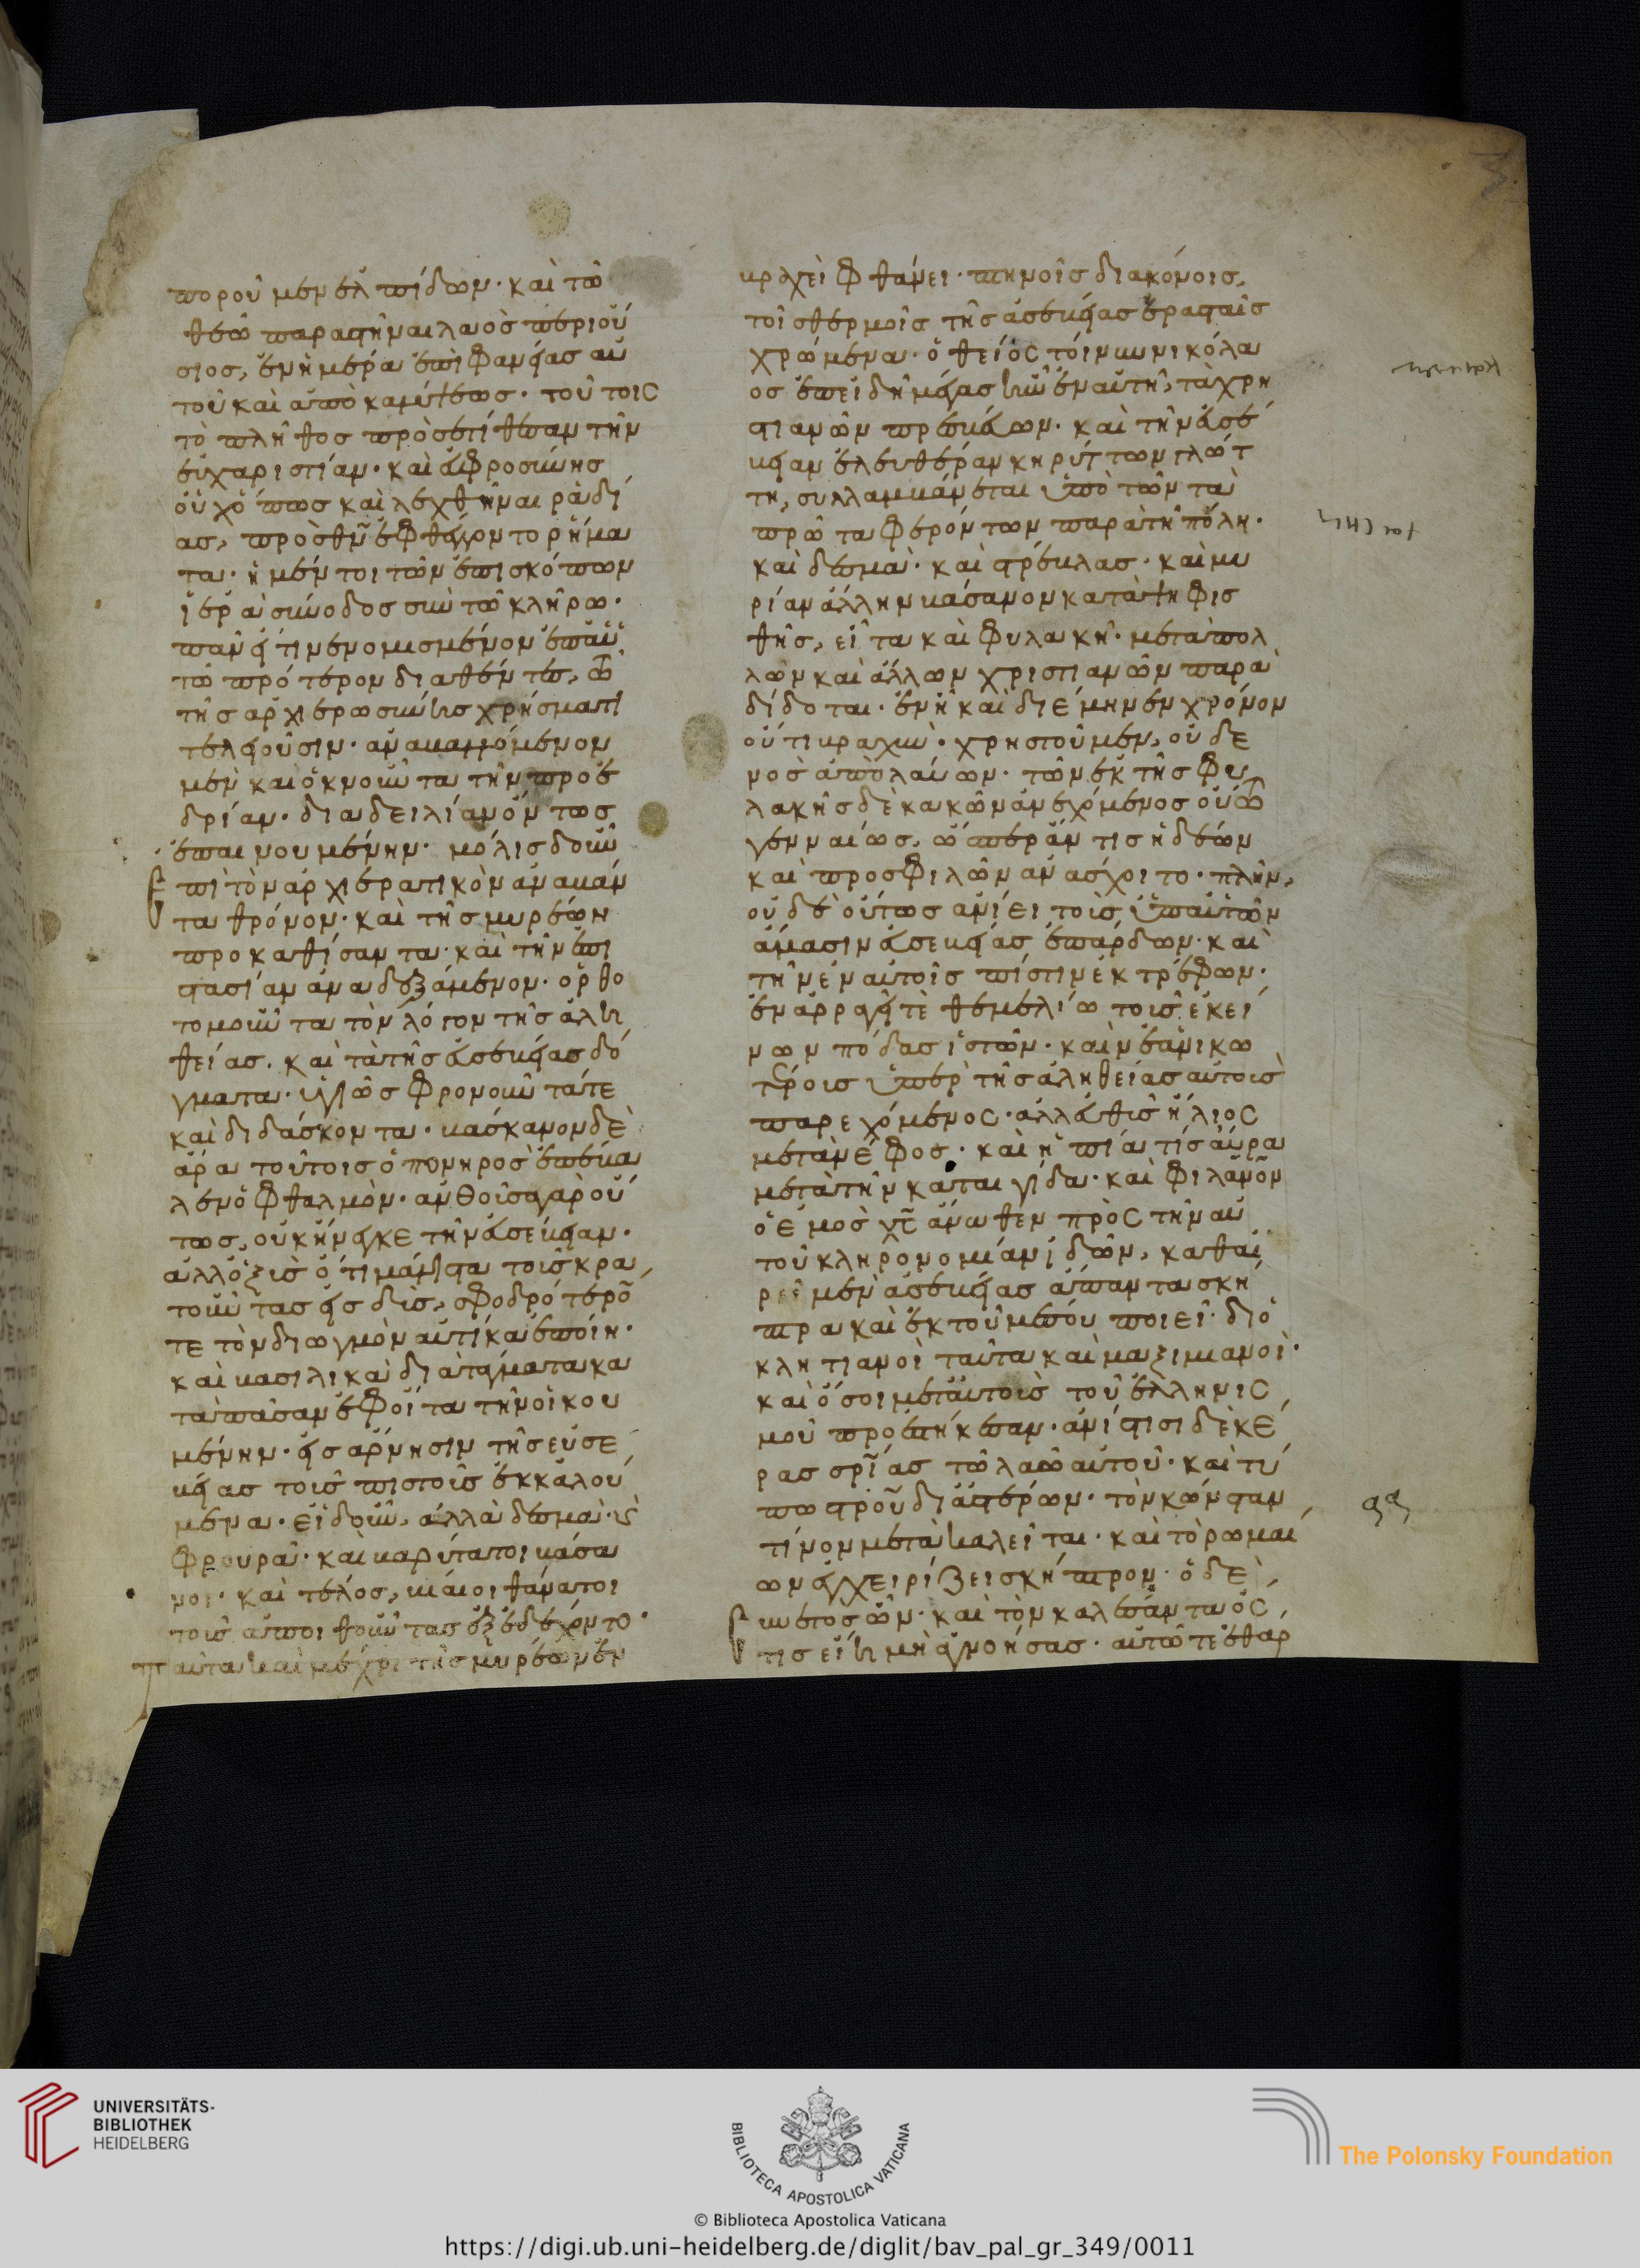 πορου μὲν ἐλπίδων· καὶ τῶ
θεῶ παραστῆναι λαὸς περιού
σιος, ἐν ἡμέρα ἐπιφανείας αὐ
τοῦ καὶ ἀποκαλύψεως· τούτοις
τὸ πλῆθος προσετίθεσαν τὴν
εὐχαριστίαν· καὶ εὐφροσύνης
οὐχ ὅπως καὶ λεχθῆναι ραδί
ας, ἐφθέγγοντο ρήμα
τα· ἡ μέντοι τῶν ἐπισκόπων
ἱερὰ σύνοδος σὺν τῶ κλήρω·
πᾶν εἴ τι νενομισμένον ἐπαὐ
τῶ πρότερον διαθέντες,
τῆς ἀρχιερωσύνης χρήσματι
τελειοῦσιν· ἀναβαλλόμενον
μὲν καὶ ὀκνοῦντα τὴν προε
δρίαν· διὰ δειλίαν ὄντως
ἐπαινουμένην· μόλις δοὖν
ἐπὶ τὸν ἀρχιερατικὸν ἀναβάν
τα θρόνον· καὶ τῆς μυρέων
προκαθίσαντα· καὶ τὴν ἐπι
στασίαν ἀναδεξάμενον· ὀρθο
τομοῦντα τὸν λόγον τῆς ἀλη
θείας. καὶ τὰ τῆς εὐσεβείας δό
γματα· ὑγιῶς φρονοῦντά τε
καὶ διδάσκοντα· βάσκανον δὲ
ἄρα τούτοις ὁ πονηρὸς ἐπέβα
λεν ὀφθαλμὸν· γὰρ οὕ
τως, οὐκ ἤνεγκε τὴν εὐσέβειαν·
ἀλλ ὀξὺς ὅτι μάλιστα τοὺς κρα
τοῦντας εἰς δὺς, σφοδρότερον
τε τὸν διωγμὸν αὐτίκα ἐποίει·
καὶ βασιλικὰ διατάγματα κα
τὰ πᾶσαν ἐφοίτα τὴν οἰκου
μένην· εἰς ἄρνησιν τῆς εὐσε
βείας τοὺς πιστοὺς ἐκκαλού
μενα· εἰ δοὖν, ἀλλὰ δεσμὰ· ϗ
φρουραὶ· καὶ βαρύτατοι βάσα
νοι· καὶ τέλος, βίαιοι θάνατοι
τοὺς ἀπειθοῦντας ἐξεδέχοντο·
ταῦτα καὶ μέχρι τῆς μυρέων ἐν
βραχεῖ φθάνει· πτηνοῖς διακόνοις,
τοῖς θερμοῖς τῆς ἀσεβείας ἐρασταῖς
χρώμενα· ὁ θεῖος τοίνυν νικόλα
ος ἐπειδὴ μέγας ἦν ἐν αὐτῆ, τὰ χρη
στιανῶν πρεσβεύων· καὶ τὴν εὐσέ
βειαν ἐλευθέραν κηρύττων γλώτ
τη, συλλαμβάνεται ὑπὸ τῶν τὰ
πρῶτα φερόντων παρὰ τῆ πόλη·
καὶ δεσμὰ· καὶ στρέβλας· καὶ μυ
ρίαν ἄλλην βάσανον καταψηφισ
θῆς, εἶτα καὶ φυλακῆ· μετὰ πολ
λῶν καὶ ἄλλων χριστιανῶν παρα
δίδοται· ἐν ἧ καὶ διέμηνεν χρόνον
οὔτι βραχὺν· χρηστοῦ μὲν, οὐδε
νὸς ἀπολαύων· τῶν ἐκ τῆς φυ
λακῆς δὲ κακῶν ἀνεχόμενος οὕτω
γενναίως, ὥσπερ ἄν τις ἡδέων
καὶ προσφιλῶν ἀνάσχοιτο· πλὴν,
οὐδὲ οὕτως ἀνίει τοῖς ὑπαὐτῶν
νάμασιν εὐσεβείας ἐπάρδων· καὶ
τὴν ἐν αὐτοῖς πίστιν ἐκτρέφων·
ἐν ἀρραγεῖ τὲ θεμελίω τοὺς ἐκεί
νων πόδας ἱστῶν· καὶ νεανικω
τέροις ὑπὲρ τῆς ἀληθείας αὐτοὺς
παρεχόμενος· ἀλλ εὐθὺς ἥλιος
μετὰ νέφος· καὶ ἠπία τίς αὔρα
μετὰ τὴν καταιγίδα· καὶ φιλανον
ὁ ἐμὸς χς ἄνωθεν πρὸς τὴν αὐ
τοῦ κληρονομίαν ἰδὼν, καθαι
ρεῖ μὲν ἀσεβείας ἅπαντα σκῆ
πτρα καὶ ἐκ τοῦ μέσου ποιεῖ· διο
κλητιανοὶ ταῦτα καὶ μαξιμιανοὶ·
καὶ ὅσοι μεταὐτοὺς τοῦ ἑλληνισ
μοῦ προέστηκεσαν· ἀνίστησι δὲ κέ
ρας σριας τῶ λαῶ αὐτοῦ· καὶ τύ
πω στροῦ δι ἀστέρων· τὸν κωνσταν
τίνον μετακαλεῖται· καὶ τὸ ρωμαί
ων ἐγχειρίζει σκῆπτρον· ὁ δὲ,
συνετὸς ὢν· καὶ τὸν καλέσαντα ὅς,
τις εἴη μὴ ἀγνοήσας· αὐτῶ τε ἐθάρ
UNIVERSITÄTS-
BIBLIOTHEK
HEIDELBERG
BIBLIOTECA APOSTOLICA VATICANA
The Polonsky Foundation
© Biblioteca Apostolica Vaticana
https://digi.ub.uni-heidelberg.de/diglit/bav_pal_gr_349/0011